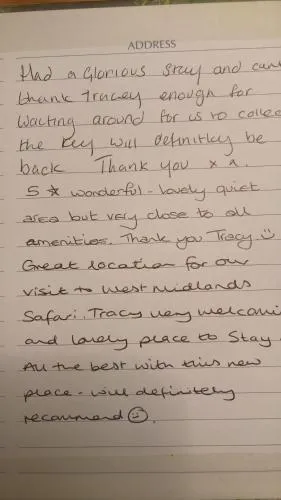 ADDRESS
Had a Glorious Stay and can
thank Tracey enough for
waiting around for us to collec
the key will definitley be
back Thank you x x.
5 ☆ wonderful - lovely quiet
area but very close to all
amenities. Thank you Tracy ☺
Great location for our
visit to West Midlands
Safari. Tracy very welcomi
and lovely place to stay
All the best with this new
place - will definitely
recommend ☺.